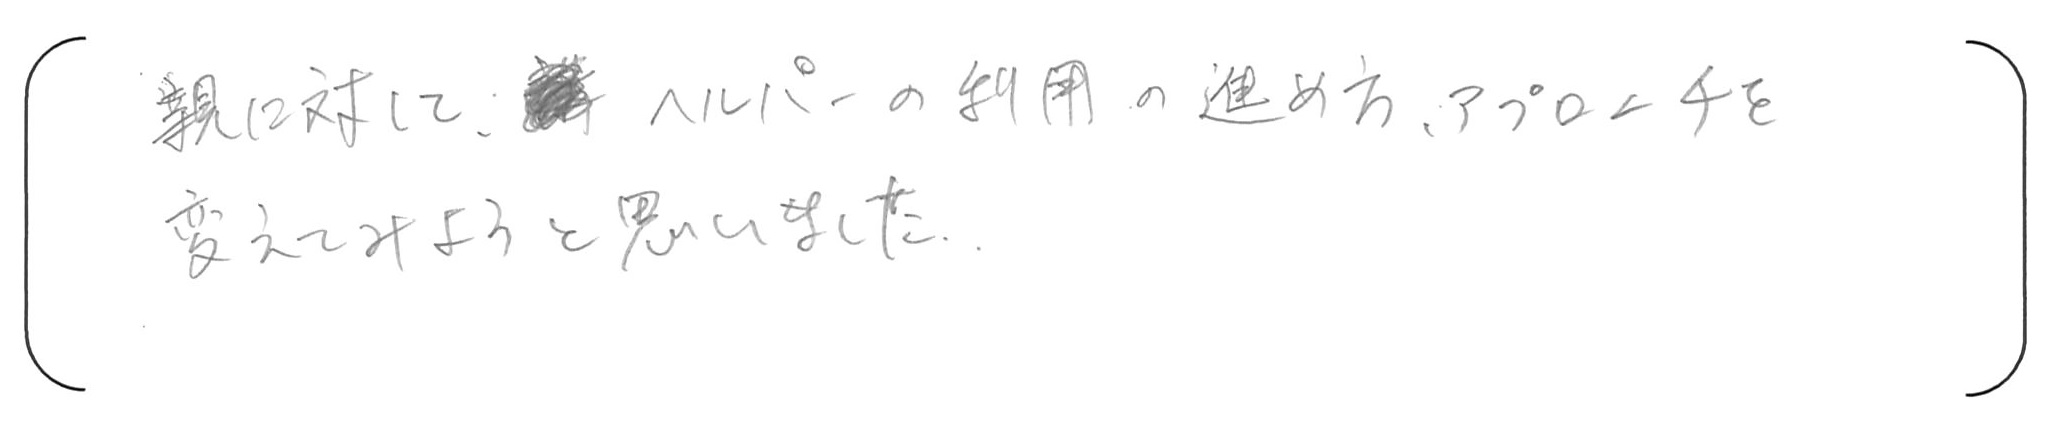 親に対して、ヘルパーの利用の進め方、アプローチを
変えてみようと思いました。